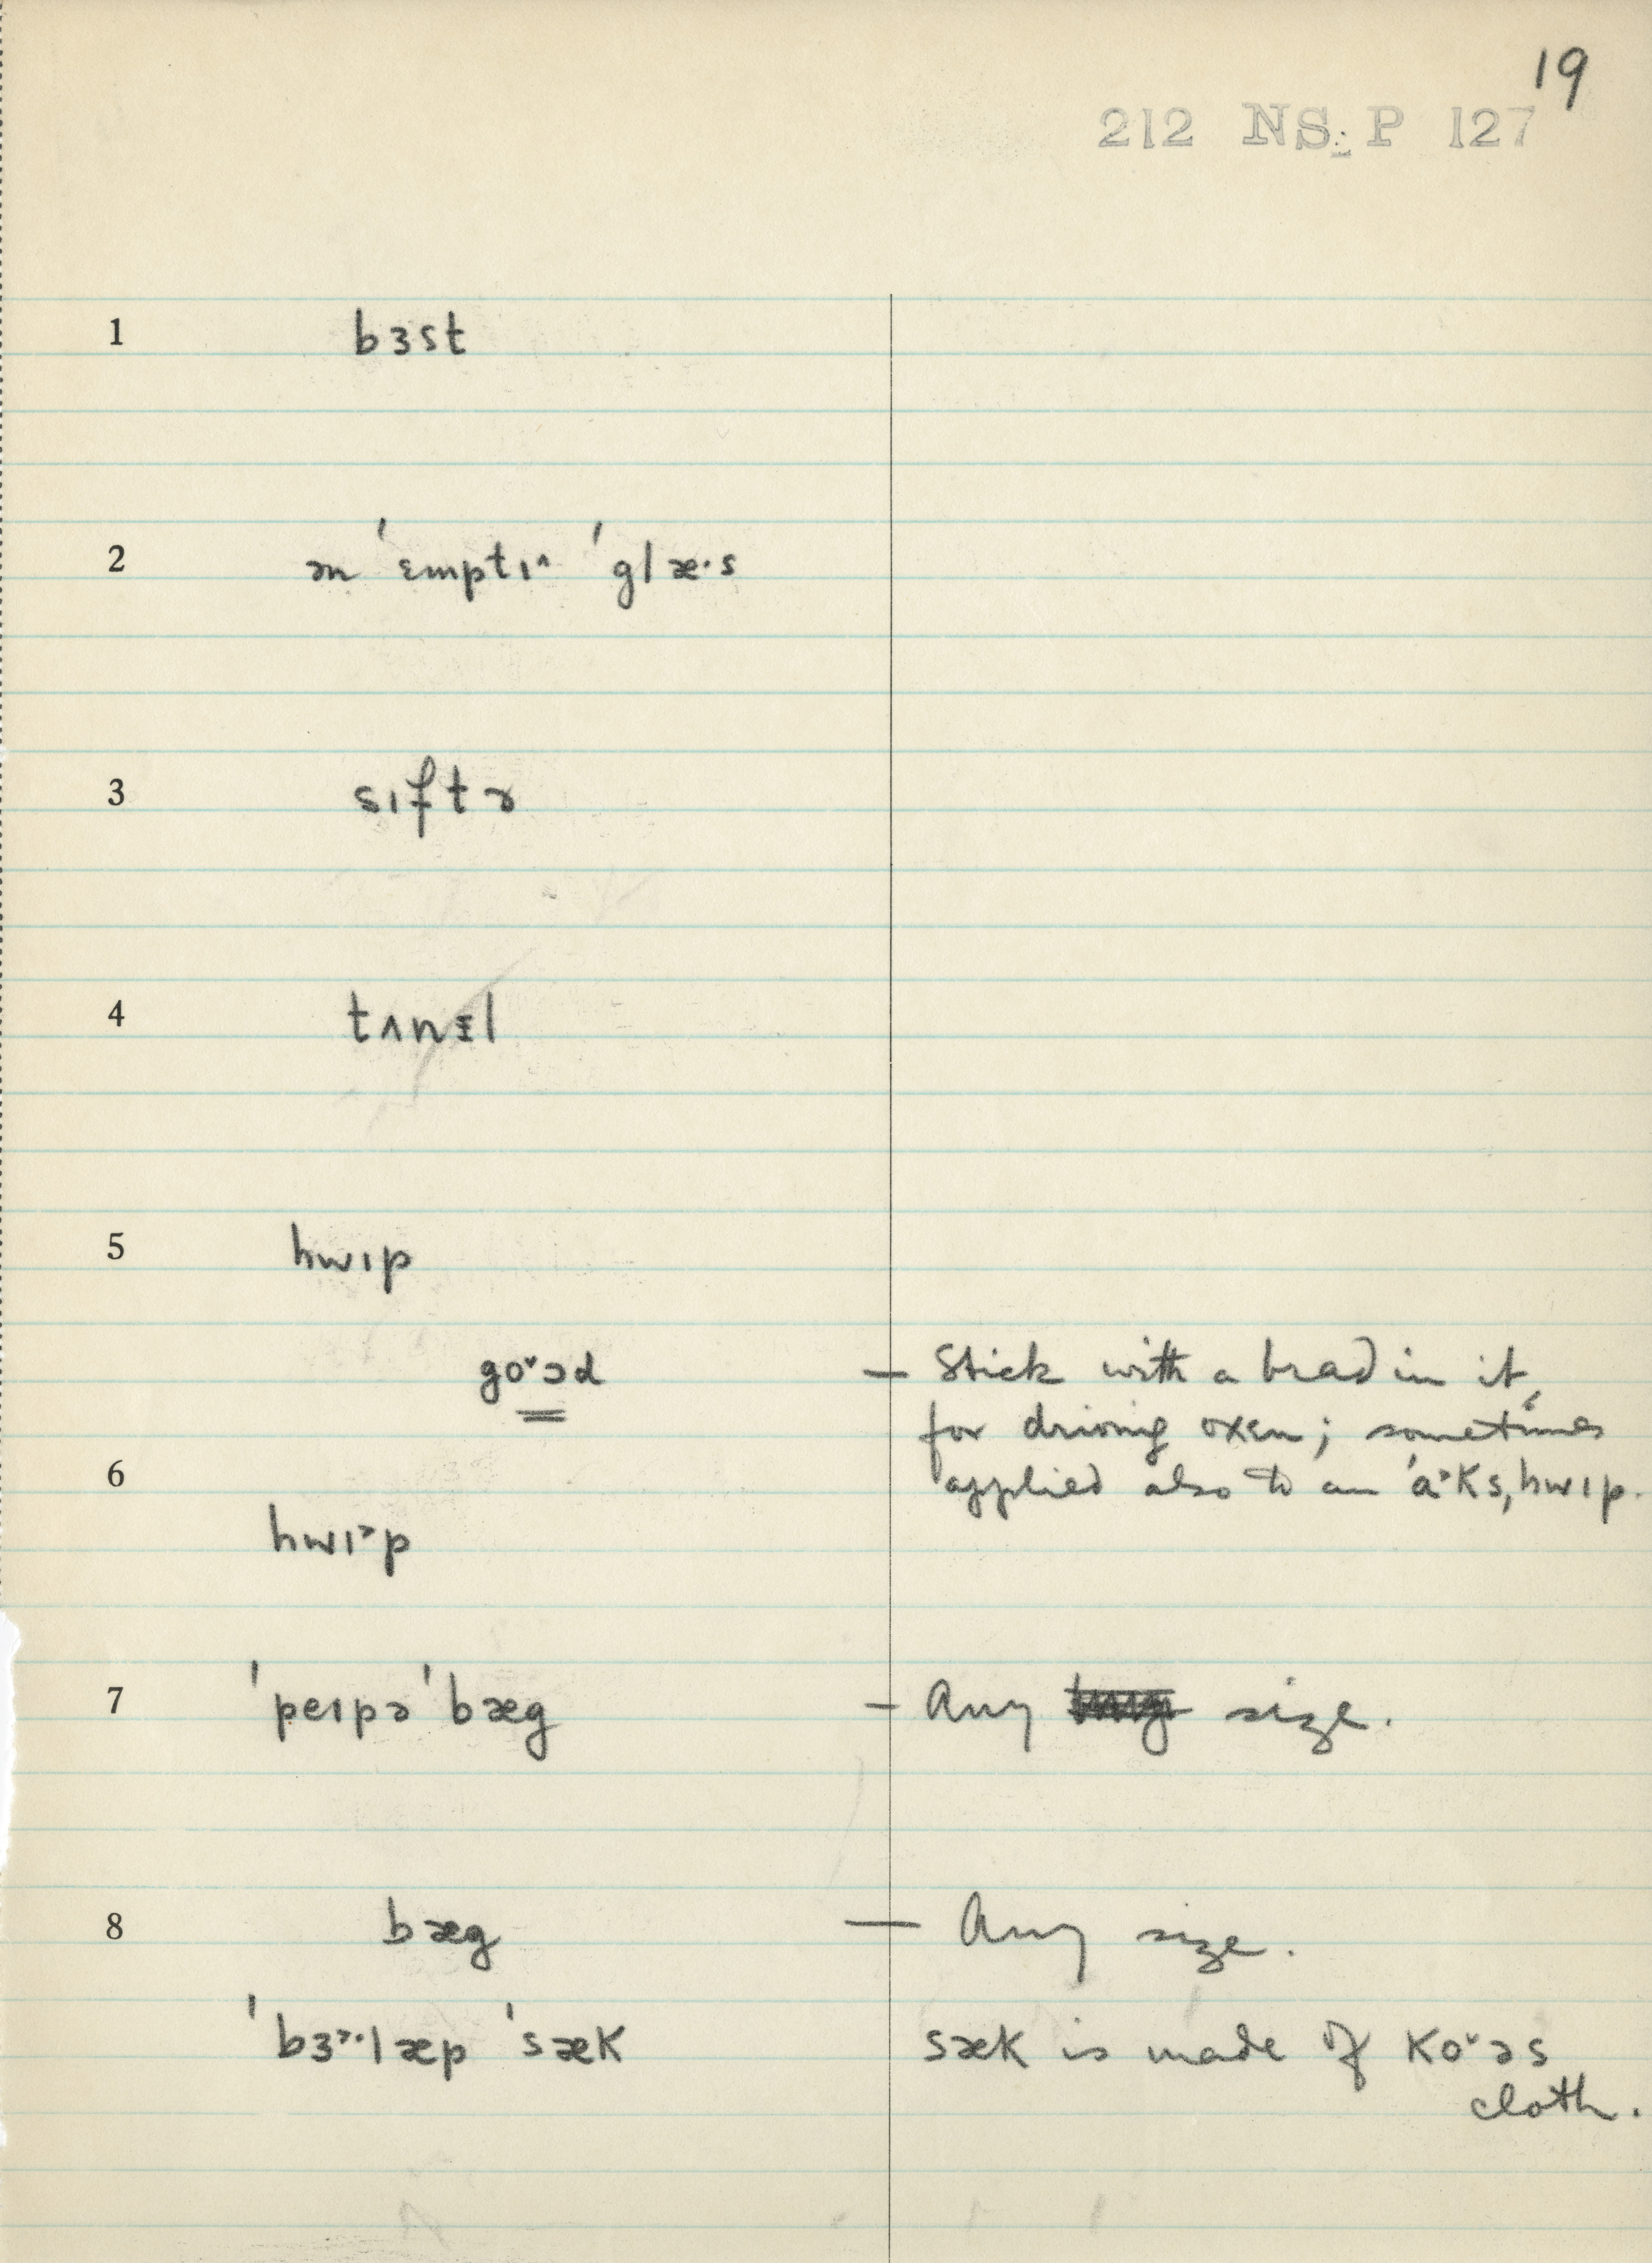 19
212 NS. P 127
1 bɜst
2 ən ˈɛmptɪ^ ˈglæ·s
3 sɪftɚ
4 tʌnɪ̵l
5 hwɪp
go˅ɔd — Stick with a brad in it,
for driving oxen; sometimes
6 applied also to an ˈa˃ks,hwɪp.
hwɪ˃p
7 ˈpeɪpə ˈbæg — Any size.
8 bæg — Any size.
ˈbɜ˃·læp ˈsæk sæk is made of ko˅əs
cloth.